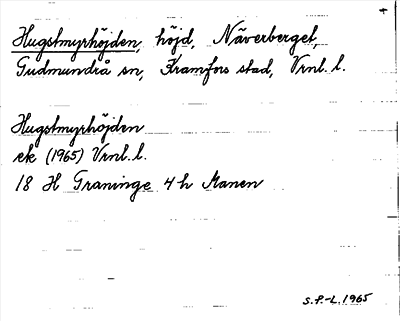 Hugstmyrhöjden, höjd, Näverberget,
Gudmundrå sn, Kramfors stad, Vrnl. l.
Hugstmyrhöjden
ek (1965) Vrnl. l.
18 H Graninge 4 h Manen
S.P.-L. 1965